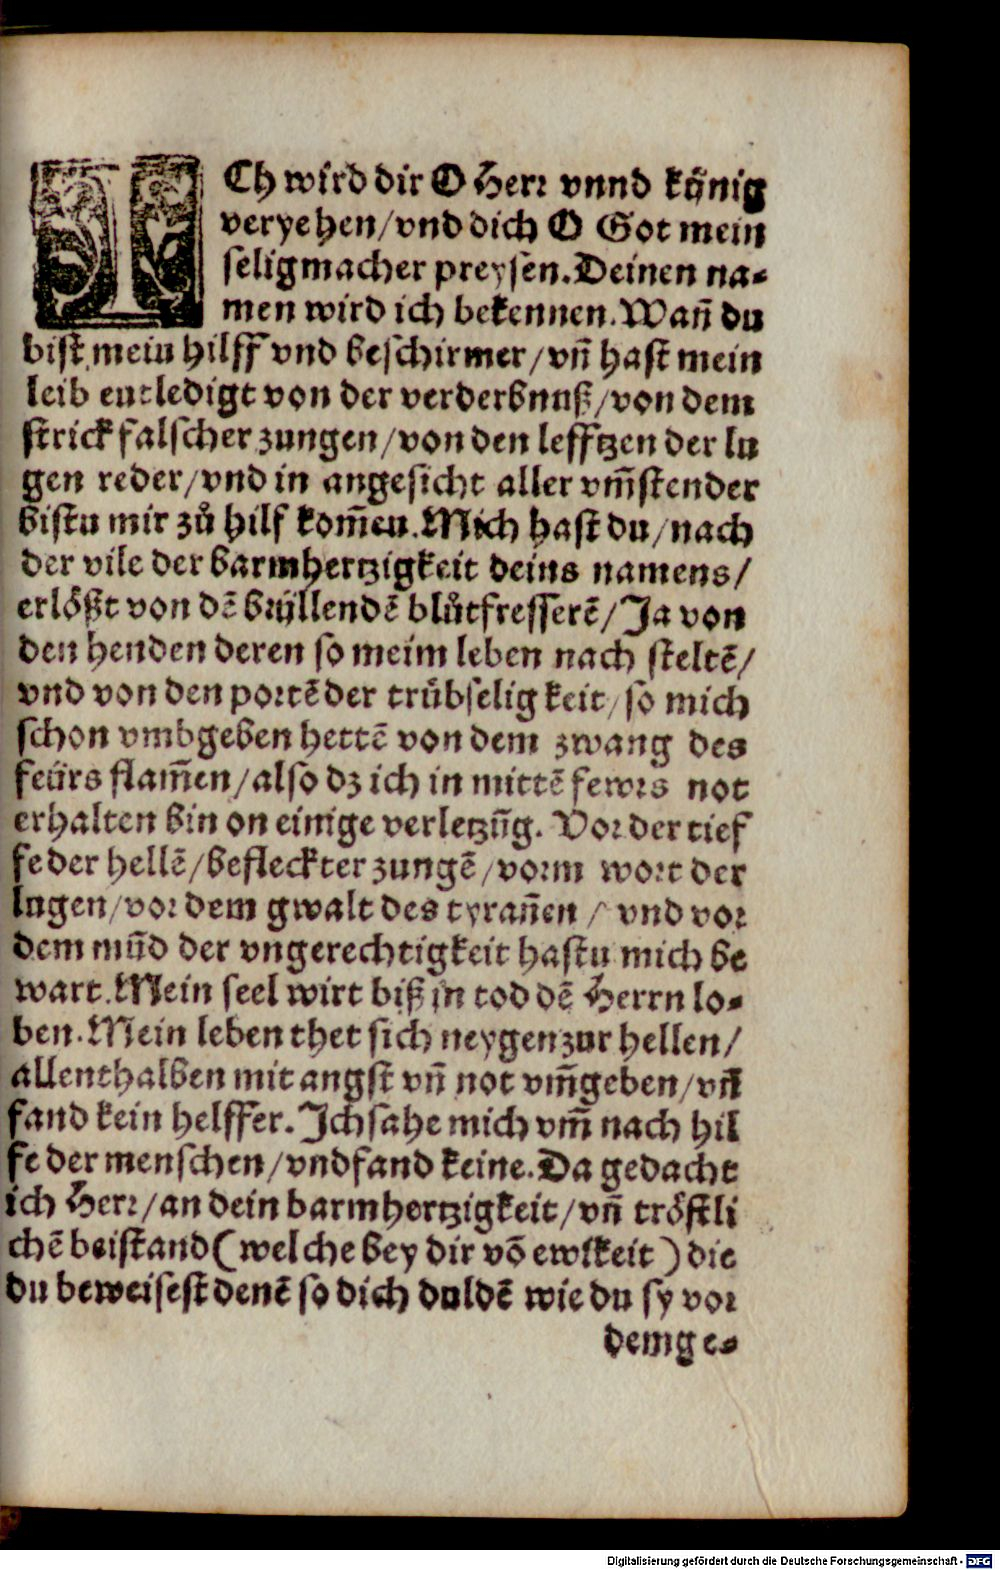 ICh wird dir O Herr vnnd künig
veryehen/vnd dich O Got mein
seligmacher preysen. Deinen na-
men wird ich bekennen. Wañ du
bist mein hilff vnd beschirmer/vñ hast mein
leib entledigt von der verderbnuß/von dem
strick falscher zungen/von den lefftzen der lu
gen reder/vnd in angesicht aller vm̃stender
bistu mir zů hilf kom̃en. Mich hast du/nach
der vile der barmhertzigkeit deins namens/
erlößt von dẽ brüllendẽ blůtfresserẽ/Ja von
den henden deren so meim leben nach steltẽ/
vnd von den portẽ der trübseligkeit/so mich
schon vmbgeben hettẽ von dem zwang des
feürs flam̃en/also dz ich in mittẽ fewrs not
erhalten bin on einige verletzũg. Vor der tief
fe der hellẽ/befleckter zungẽ/vorm wort der
lugen/vor dem gwalt des tyrañen/vnd vor
dem mũd der vngerechtigkeit hastu mich be
wart. Mein seel wirt biß in tod dẽ Herrn lo-
ben. Mein leben thet sich neygen zur hellen/
allenthalben mit angst vñ not vm̃geben/vñ
fand kein helffer. Ich sahe mich vm̃ nach hil
fe der menschen/vnd fand keine. Da gedacht
ich Herr/an dein barmhertzigkeit/vñ tröstli
chẽ beistand (welche bey dir võ ewikeit) die
du beweisest denẽ so dich duldẽ wie du sy vor
dem ge-
Digitalisierung gefördert durch die Deutsche Forschungsgemeinschaft - DFG